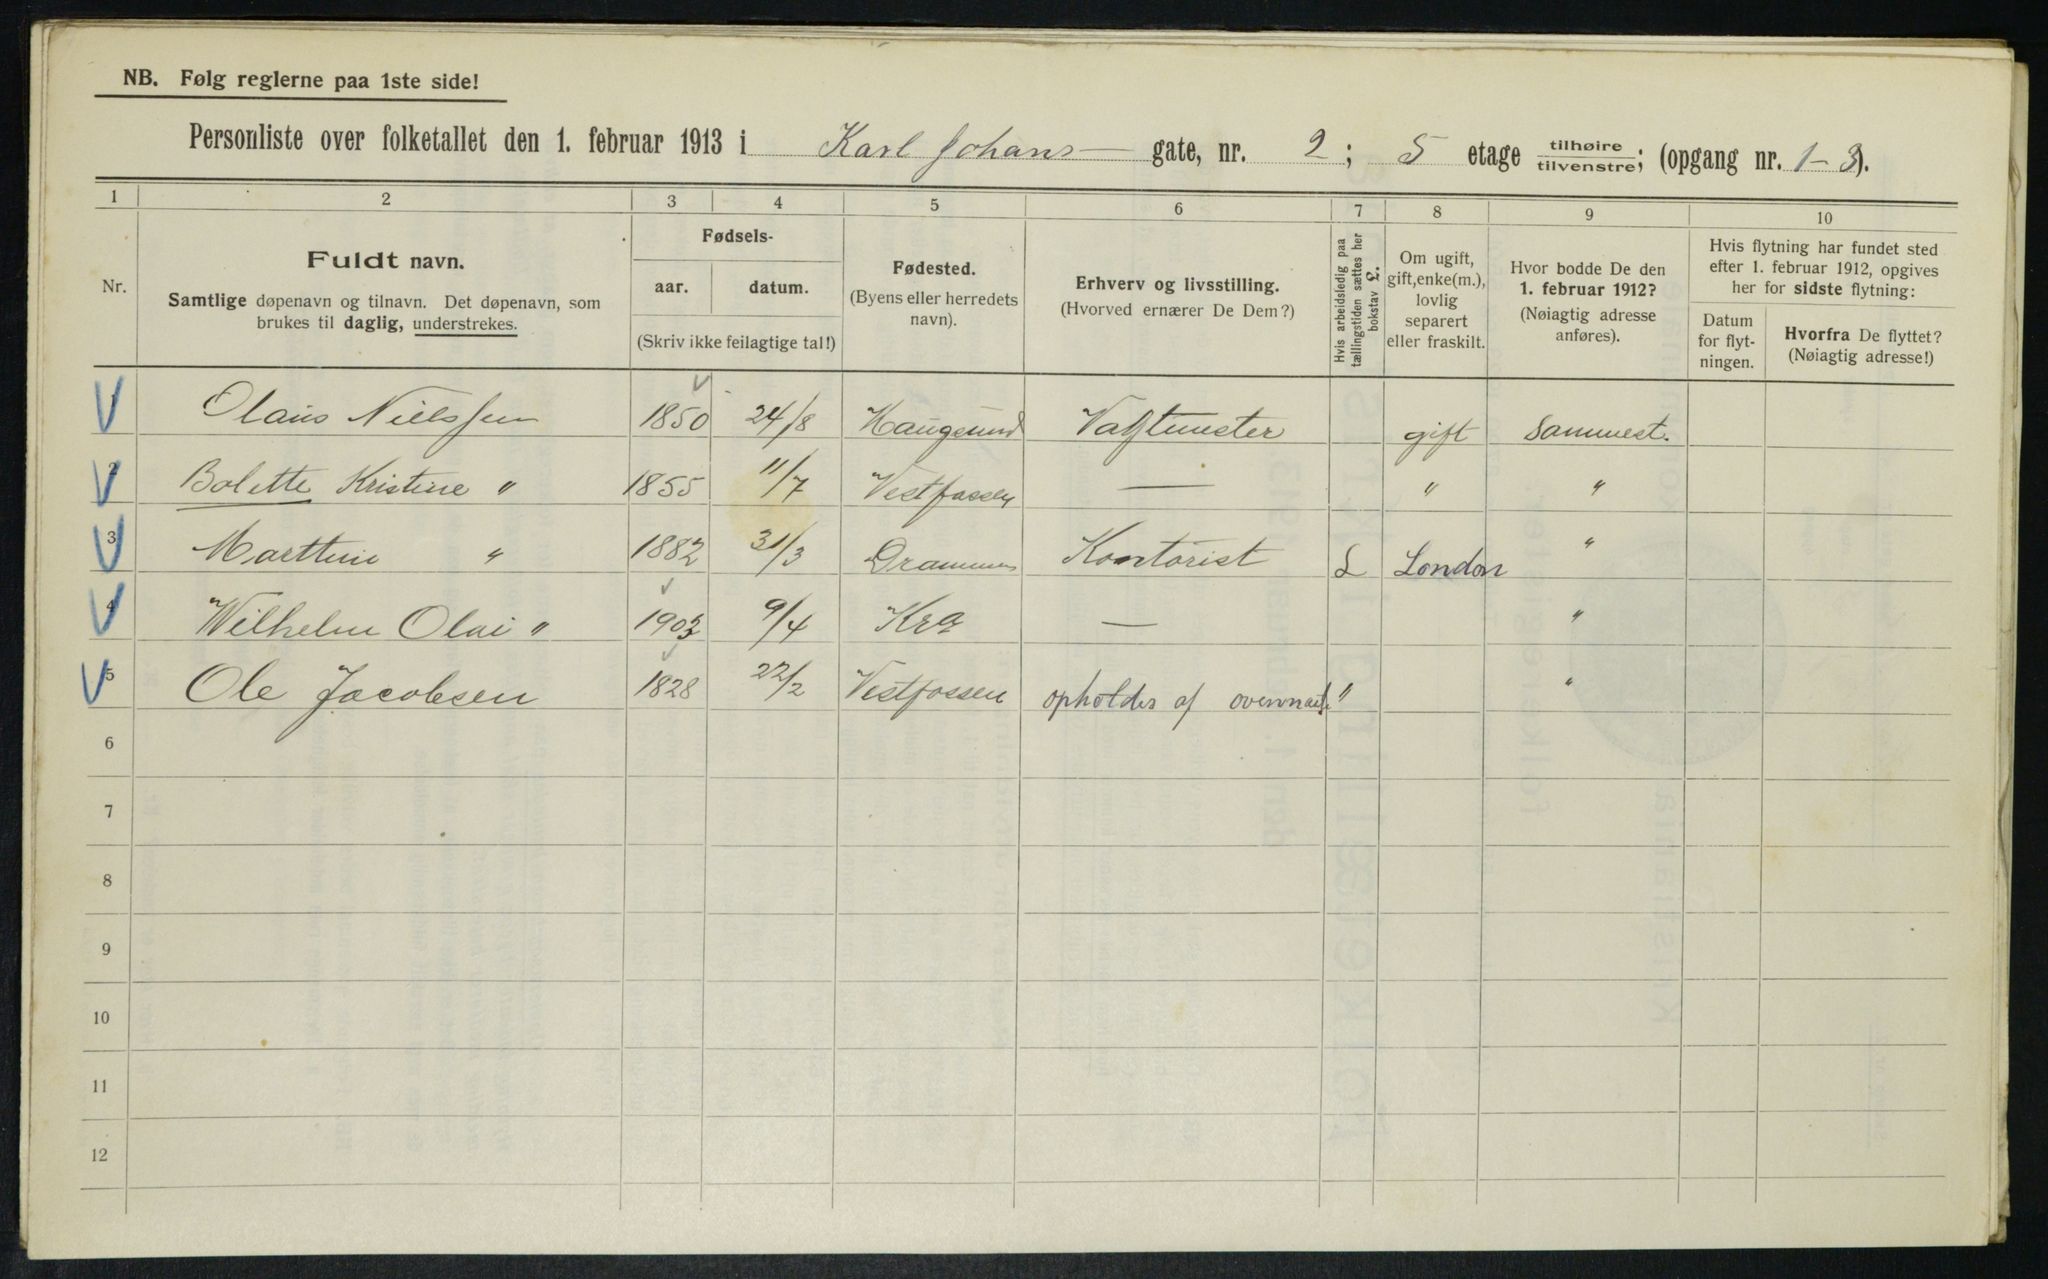 NB. Følg reglerne paa 1ste side!
Personliste over folketallet den 1. februar 1913 i Karl Johans gate, nr. 2; 5 etage tilhøire/tilvenstre; (opgang nr. 1-3).
1 2 3 4 5 6 7 8 9 10
Nr.
Fuldt navn.
Samtlige døpenavn og tilnavn. Det døpenavn, som
brukes til daglig, understrekes.
Fødsels-
aar. datum.
(Skriv ikke feilagtige tal!)
Fødested.
(Byens eller herredets
navn).
Erhverv og livsstilling.
(Hvorved ernærer De Dem?)
Hvis arbeidsledig paa
tællingstiden sættes her
bokstav L.
Om ugift,
gift, enke(m.),
lovlig
separert
eller fraskilt.
Hvor bodde De den
1. februar 1912?
(Nøiagtig adresse
anføres).
Hvis flytning har fundet sted
efter 1. februar 1912, opgives
her for sidste flytning:
Datum
for flyt-
ningen.
Hvorfra De flyttet?
(Nøiagtig adresse!)
1 Olaus Nielssen 1850 24/8 Haugsund gift sammest.
2 Bolette Kristine " 1855 11/7 Vestfossen — " "
3 " 1882 31/3 Drammen Kontorist L London "
4 Wilhelm Olai " 1903 9/4 Kra — "
5 Ole Jacobsen 1828 22/2 Vestfossen opholdes af " "
6
7
8
9
10
11
12